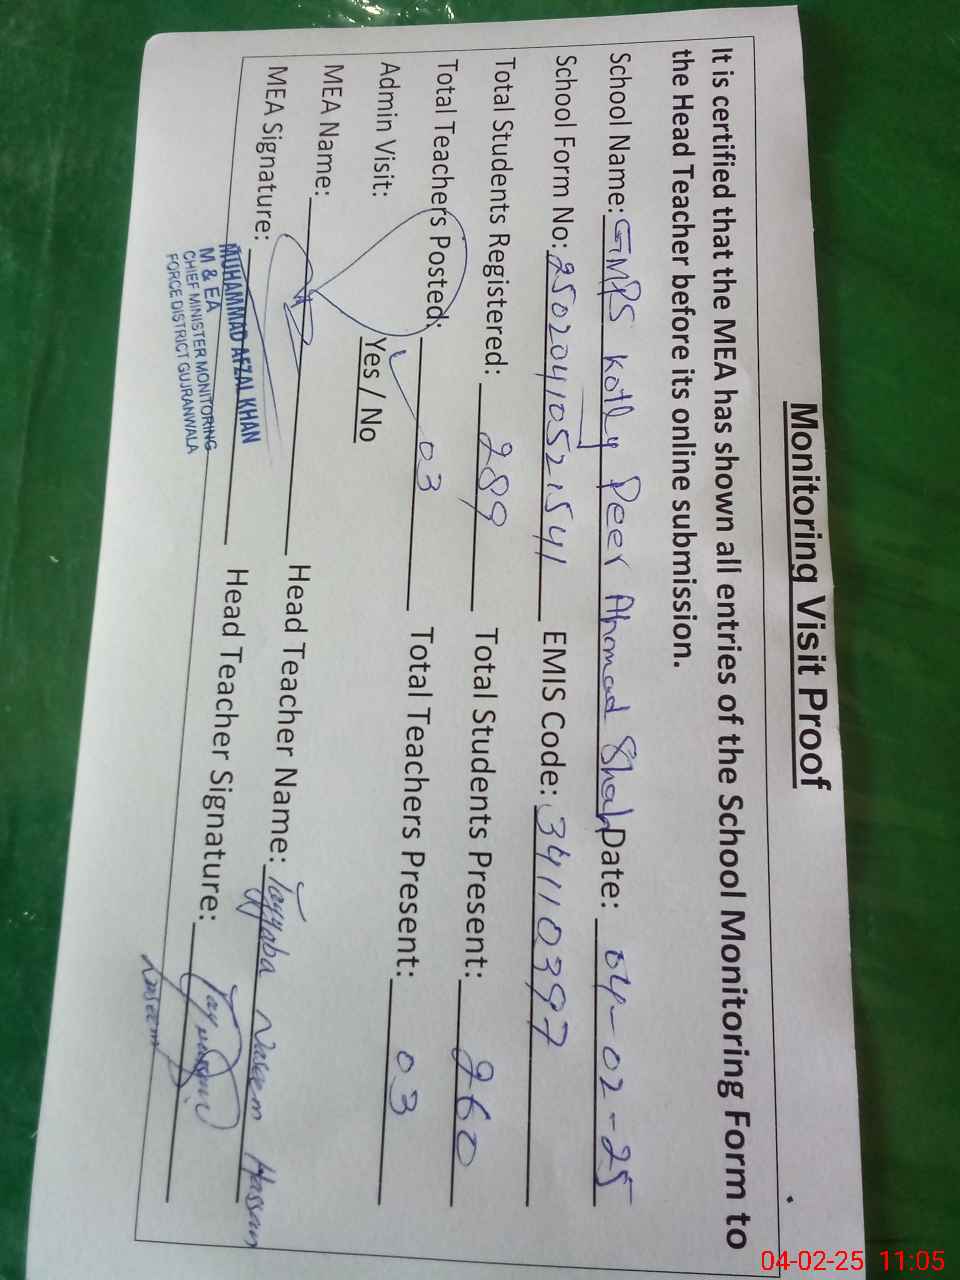 Monitoring Visit Proof
It is certified that the MEA has shown all entries of the School Monitoring Form to
the Head Teacher before its online submission.
School Name: GMPS Kotly Peer Ahmad Shah Date: 04-02-25
School Form No: 25020410521541 EMIS Code: 34110397
Total Students Registered: 289 Total Students Present: 260
Total Teachers Posted: 03 Total Teachers Present: 03
Admin Visit: Yes / No
MEA Name: Head Teacher Name: Tayyaba Naseem Hassan
MEA Signature: Head Teacher Signature:
MUHAMMAD AFZAL KHAN
M & EA
CHIEF MINISTER MONITORING
FORCE DISTRICT GUJRANWALA
04-02-25 11:05